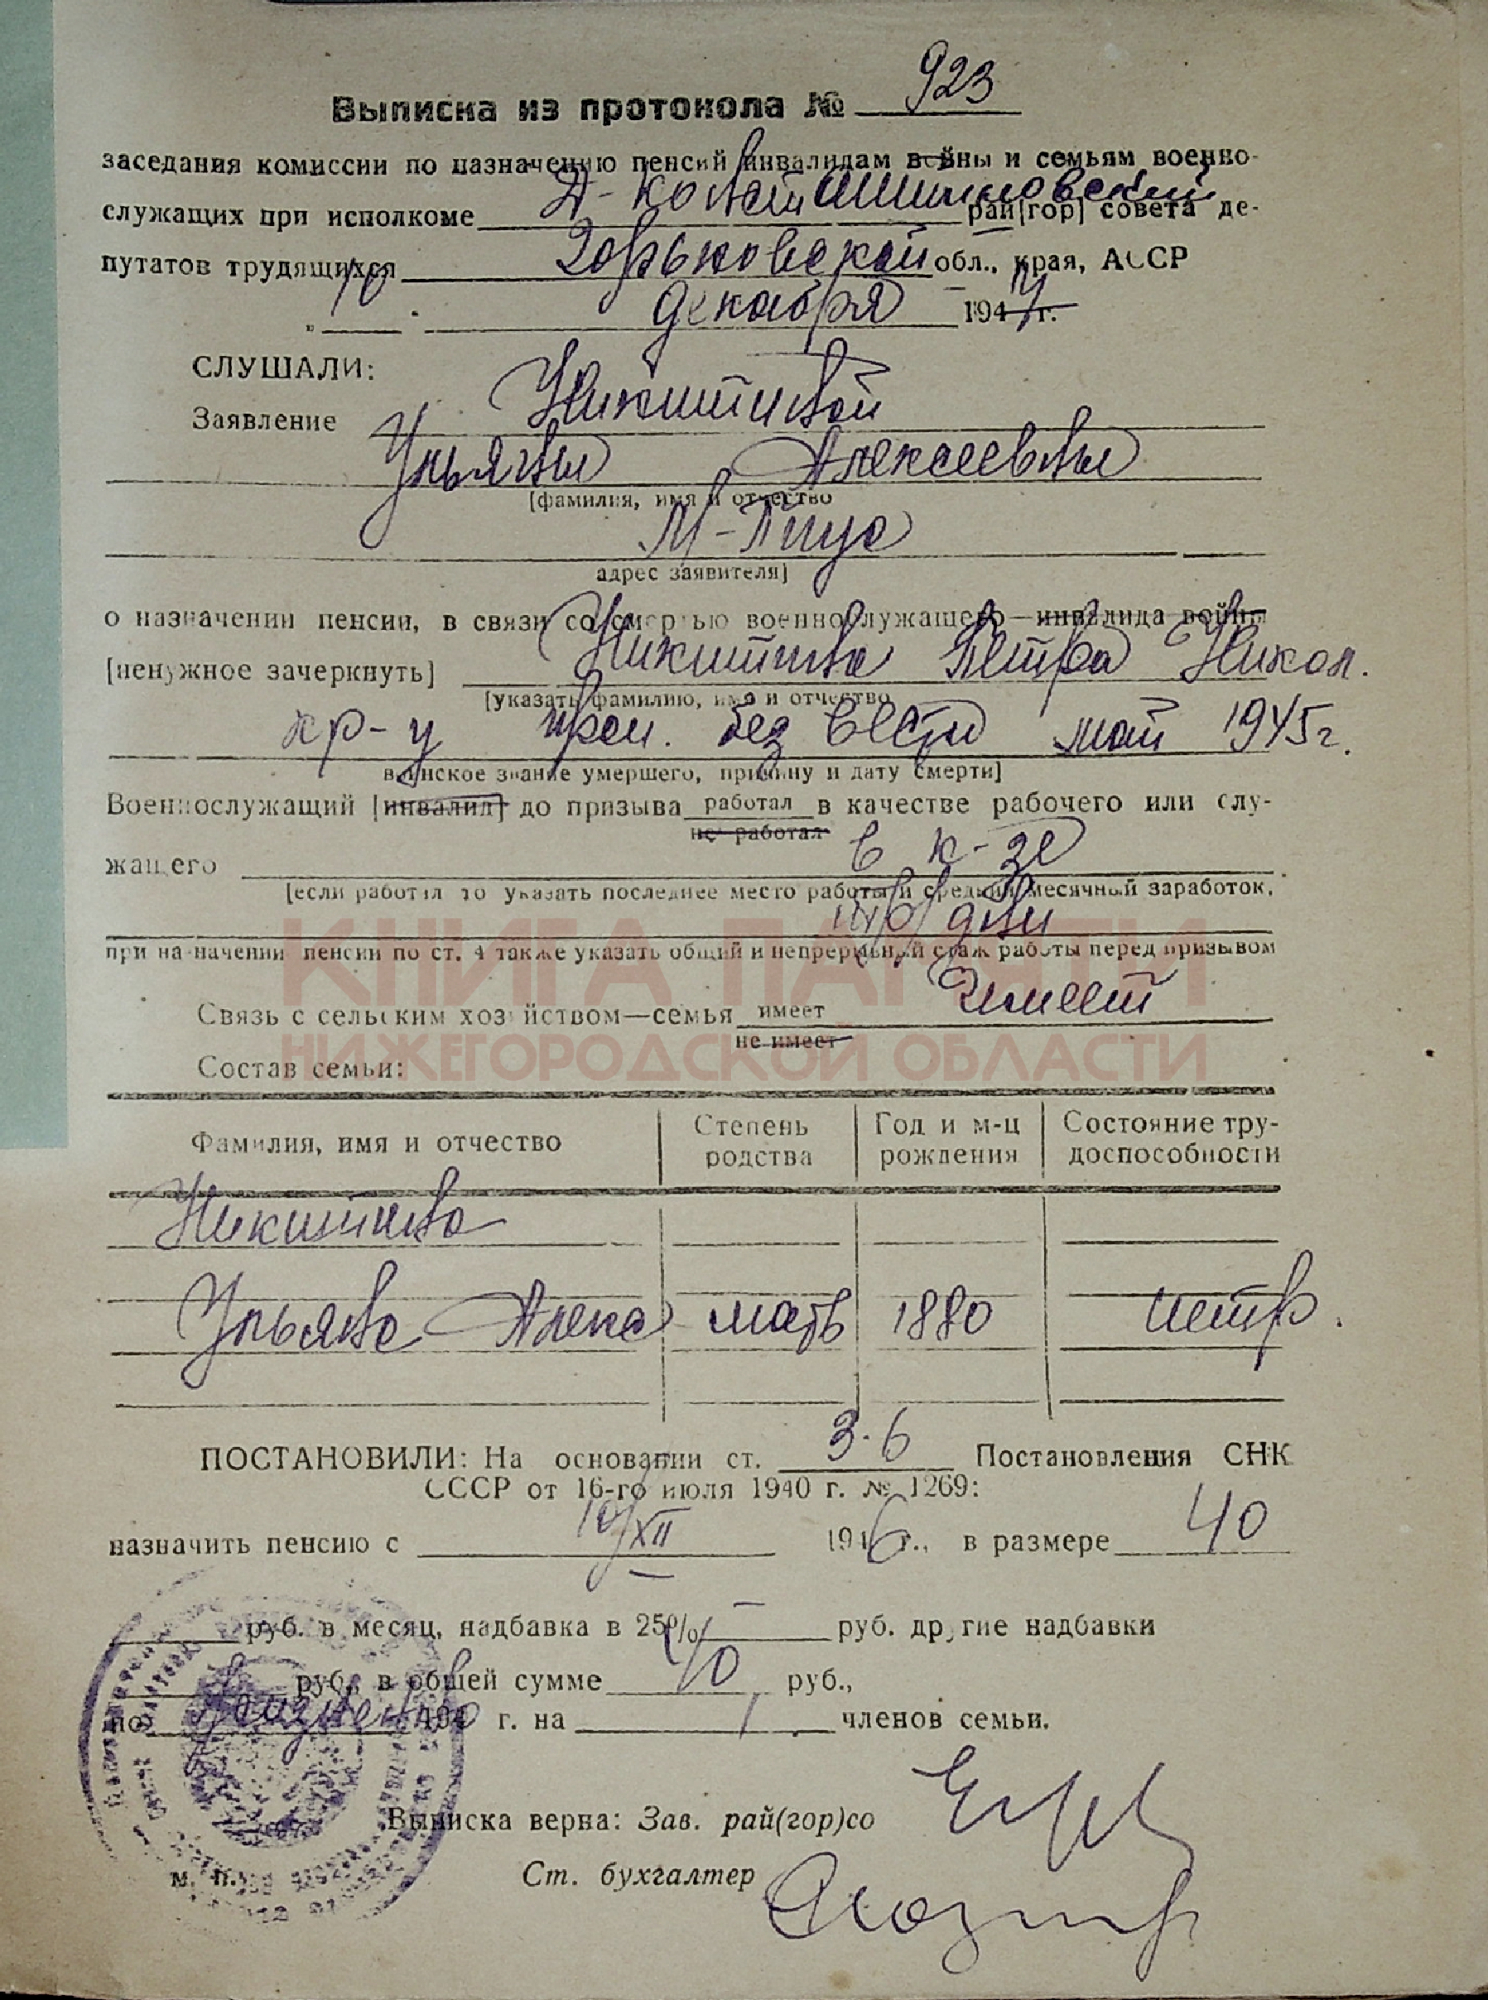 Выписка из протокола № 923
заседания комиссии по назначению пенсий инвалидам войны и семьям военно-
служащих при исполкоме Д-Константиновский рай[гор] совета де-
путатов трудящихся Горьковской обл., края, АССР
„ 10 " декабря 194 г.
СЛУШАЛИ:
Заявление Никитиной
Ульяны Алексеевны
[фамилия, имя и отчество
М-Пица
адрес заявителя]
о назначении пенсии, в связи со смертью военнослужащего—инвалида войны
[ненужное зачеркнуть] Никитина Петра Никол.
[указать фамилию, имя и отчество
кр-ц проп. без вести май 1945 г.
воинское звание умершего, причину и дату смерти]
Военнослужащий [инвалид] до призыва работал в качестве рабочего или слу-
не работал
жащего в к-зе
[если работал то указать последнее место работы и средний месячный заработок,
дни
при назначении пенсии по ст. 4 также указать общий и непрерывный стаж работы перед призывом
КНИГА ПАМЯТИ
Связь с сельским хозяйством—семья имеет имеет
не имеет
НИЖЕГОРОДСКОЙ ОБЛАСТИ
Состав семьи:
Фамилия, имя и отчество Степень родства Год и м-ц рождения Состояние тру-доспособности
Никитина
Ульяна Алекс мать 1880 нетр.
ПОСТАНОВИЛИ: На основании ст. 3-6 Постановления СНК
СССР от 16-го июля 1940 г. № 1269:
назначить пенсию с 10/XII 1946 г., в размере 40
руб. в месяц, надбавка в 25% — руб. другие надбавки
руб., в общей сумме 40 руб.,
по пожизненно 194 г. на 1 членов семьи.
Выписка верна: Зав. рай(гор)со
Ст. бухгалтер
м. п.